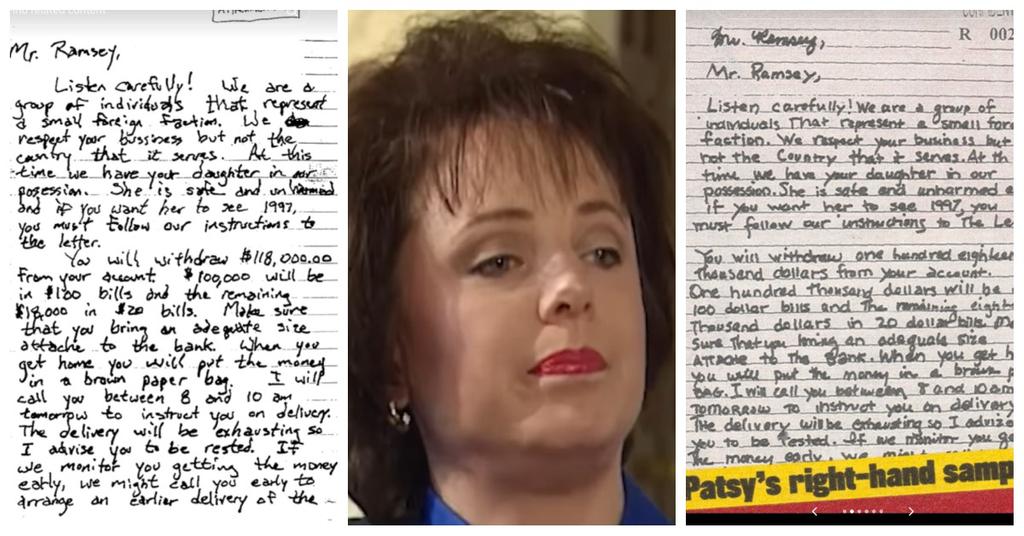 Mr. Ramsey,
Listen carefully! We are a
group of individuals that represent
a small foreign faction. We
respect your bussiness but not the
country that it serves. At this
time we have your daughter in our
posession. She is safe and unharmed
and if you want her to see 1997,
you must follow our instructions to
the letter.
You will withdraw $118,000.00
from your account. $100,000 will be
in $100 bills and the remaining
$18,000 in $20 bills. Make sure
that you bring an adequate size
attache to the bank. When you
get home you will put the money
in a brown paper bag. I will
call you between 8 and 10 am
tomorrow to instruct you on delivery.
The delivery will be exhausting so
I advise you to be rested. If
we monitor you getting the money
early, we might call you early to
arrange an earlier delivery of the
R 002
Mr. Ramsey,
Mr. Ramsey,
Listen carefully! We are a group of
individuals That represent a small fore
faction. We respect your business but
not the Country that it serves. At th
time we have your daughter in our
possession. She is safe and unharmed a
if you want her to see 1997, you
must follow our instructions to The Le
You will withdraw one hundred eighteen
thousand dollars from your account.
One hundred Thousand dollars will be
100 dollar bills and The remaining eight
Thousand dollars in 20 dollar bills. M
Sure That you bring an adequate size
ATTACHE TO The Bank. When you get h
you will put the money in a brown p
BAG. I will call you between 8 and 10 am
TOMORROW TO instruct you on delivery
The delivery will be exhausting so I advize
you to be rested. If we monitor you ge
The money early, we
Patsy's right-hand samp